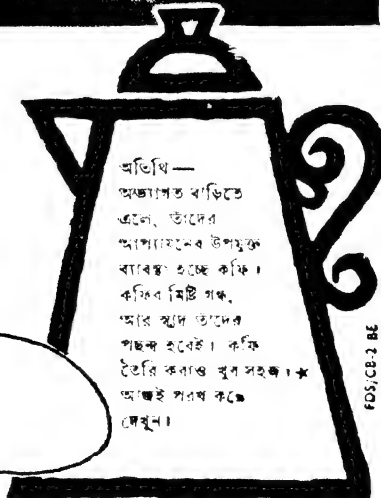 অতিথি—
অভ্যাগত বাড়িতে
এলে, তাঁদের
আপ্যায়নের উপযুক্ত
ব্যাবস্থা হচ্ছে কফি।
কফির মিষ্টি গন্ধ,
আর স্বাদ তাঁদের
পছন্দ হবেই। কফি
তৈরি করাও খুব সহজ।★
আজই পরখ করে
দেখুন।
FDS/CB-2 BE